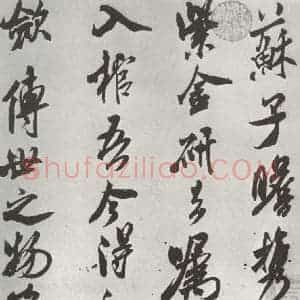 蘇子瞻携
紫金研去嘱
入棺吾今得
歛傳世之物
shufaziliao.com